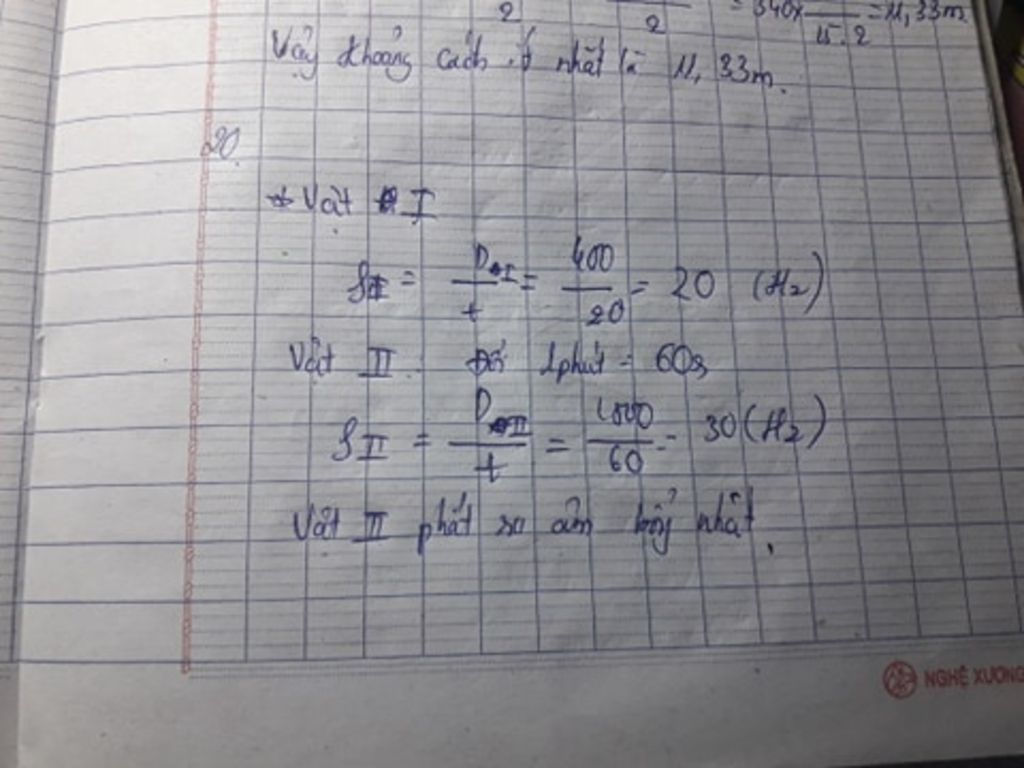 2 2 = 340 x 15.2 = 11,33m
Vậy khoảng cách ít nhất là 11,33m.
20.
* Vật I
fI = DI / t = 400 / 20 = 20 (Hz)
Vật II. Đổi 1phút = 60s
fII = DII / t = 1800 / 60 = 30 (Hz)
Vật II phát ra âm bổng nhất.
NGHỆ XƯƠNG